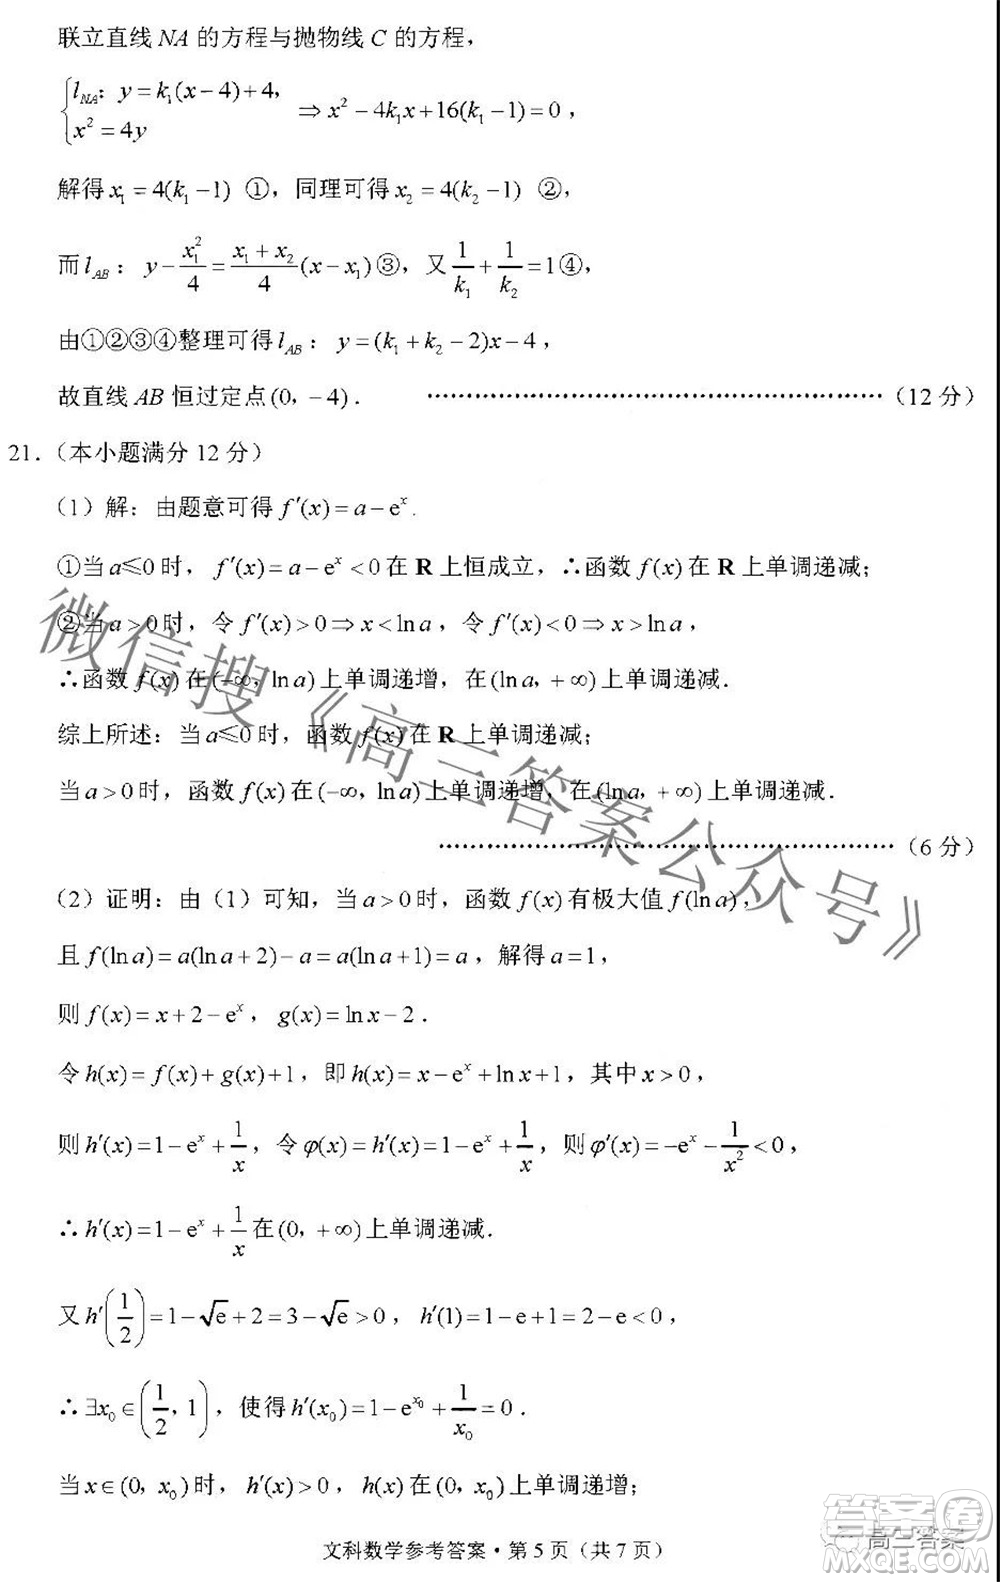 联立直线 NA 的方程与抛物线 C 的方程，
{ l_{NA}：y=k₁(x−4)+4，
x²=4y ⇒ x²−4k₁x+16(k₁−1)=0，
解得 x₁=4(k₁−1) ①，同理可得 x₂=4(k₂−1) ②，
而 l_{AB}：y−x₁²/4=(x₁+x₂)/4(x−x₁)③，又 1/k₁+1/k₂=1④，
由①②③④整理可得 l_{AB}：y=(k₁+k₂−2)x−4，
故直线 AB 恒过定点(0，−4)．……………………（12 分）
21．（本小题满分 12 分）
（1）解：由题意可得 f′(x)=a−eˣ．
①当 a≤0 时，f′(x)=a−eˣ<0 在 R 上恒成立，∴函数 f(x) 在 R 上单调递减；
②当 a>0 时，令 f′(x)>0⇒x<ln a，令 f′(x)<0⇒x>ln a，
∴函数 f(x) 在(−∞，ln a)上单调递增，在(ln a，+∞)上单调递减．
综上所述：当 a≤0 时，函数 f(x) 在 R 上单调递减；
当 a>0 时，函数 f(x) 在(−∞，ln a)上单调递增，在(ln a，+∞)上单调递减．
……………………（6 分）
（2）证明：由（1）可知，当 a>0 时，函数 f(x) 有极大值 f(ln a)，
且 f(ln a)=a(ln a+2)−a=a(ln a+1)=a，解得 a=1，
则 f(x)=x+2−eˣ，g(x)=ln x−2．
令 h(x)=f(x)+g(x)+1，即 h(x)=x−eˣ+ln x+1，其中 x>0，
则 h′(x)=1−eˣ+1/x，令 φ(x)=h′(x)=1−eˣ+1/x，则 φ′(x)=−eˣ−1/x²<0，
∴ h′(x)=1−eˣ+1/x 在(0，+∞)上单调递减．
又 h′(1/2)=1−√e+2=3−√e>0，h′(1)=1−e+1=2−e<0，
∴ ∃x₀∈(1/2，1)，使得 h′(x₀)=1−e^{x₀}+1/x₀=0．
当 x∈(0，x₀)时，h′(x)>0，h(x) 在(0，x₀)上单调递增；
文科数学参考答案·第 5 页（共 7 页）
微信搜《高三答案公众号》
高三答案
答案圈
MXQE.COM